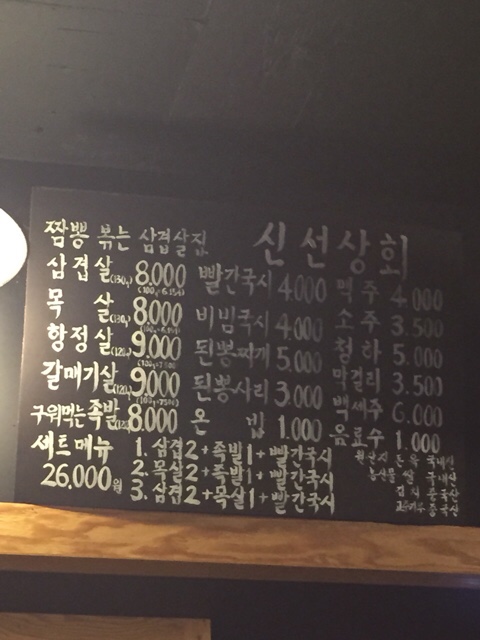 짬뽕 볶는 삼겹살집 신선상회
삼겹살(130g) 8.000 빨간국시 4.000 맥주 4.000
(100g=6.154)
목 살(130g) 8.000 비빔국시 4.000 소주 3.500
(100g=6.154)
항정살(120g) 9.000 된뽕찌개 5.000 청하 5.000
(100g=7.500)
갈매기살(120g) 9.000 된뽕사리 3.000 막걸리 3.500
(100g=7500)
구워먹는족발 8.000 온 밥 1.000 백세주 6.000
음료수 1.000
세트메뉴 1. 삼겹2+족발1+빨간국시
26,000원 2. 목살2+족발1+빨간국시
3. 삼겹2+목살1+빨간국시
원산지 돈육 국내산
쌀 국내산
중국산
중국산